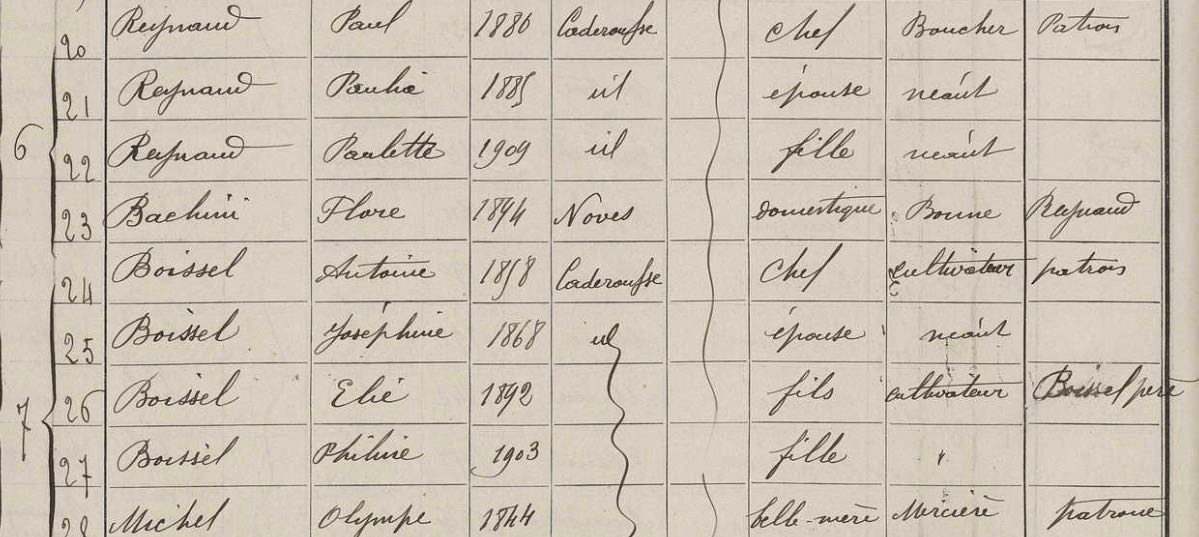 20 Reynaud Paul 1880 Caderousse chef Boucher Patron
21 Reynaud Paulie 1885 id épouse néant
6 22 Reynaud Paulette 1909 id fille néant
23 Bachini Flore 1894 Noves domestique Bonne Reynaud
24 Boissel Antoine 1858 Caderousse chef cultivateur patron
25 Boissel Joséphine 1868 id épouse néant
7 26 Boissel Elie 1892 fils cultivateur Boissel père
27 Boissel Philine 1903 fille "
28 Michel Olympe 1844 belle-mère Mercière patrone